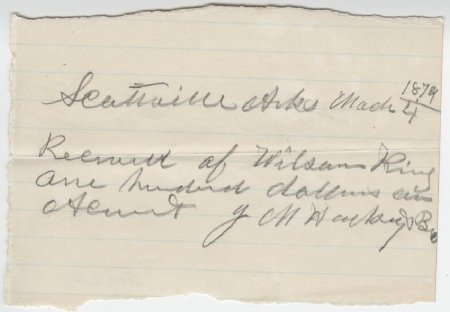 Scottville Arks Mach 4/1879
Recived of Wilson King
one hundred dollars on
Acount J M Harkey & Bro